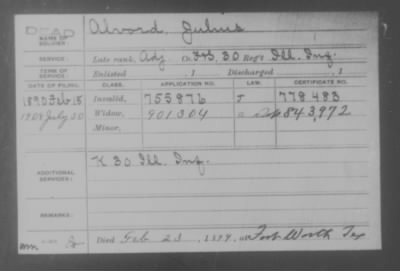 DEAD
NAME OF SOLDIER: Alvord, Julius
SERVICE: Late rank, Adj Co. F&S, 30 Reg't Ill. Inf.
TERM OF SERVICE: Enlisted , 1 Discharged , 1
DATE OF FILING. CLASS. APPLICATION NO. LAW. CERTIFICATE NO.
1890 Feb 15 Invalid, 755876 J 778483
1908 July 20 Widow, 901304 a 843,972
Minor,
ADDITIONAL SERVICES: K 30 Ill. Inf.
REMARKS:
Died Feb 23, 1899, at Fort Worth Tex